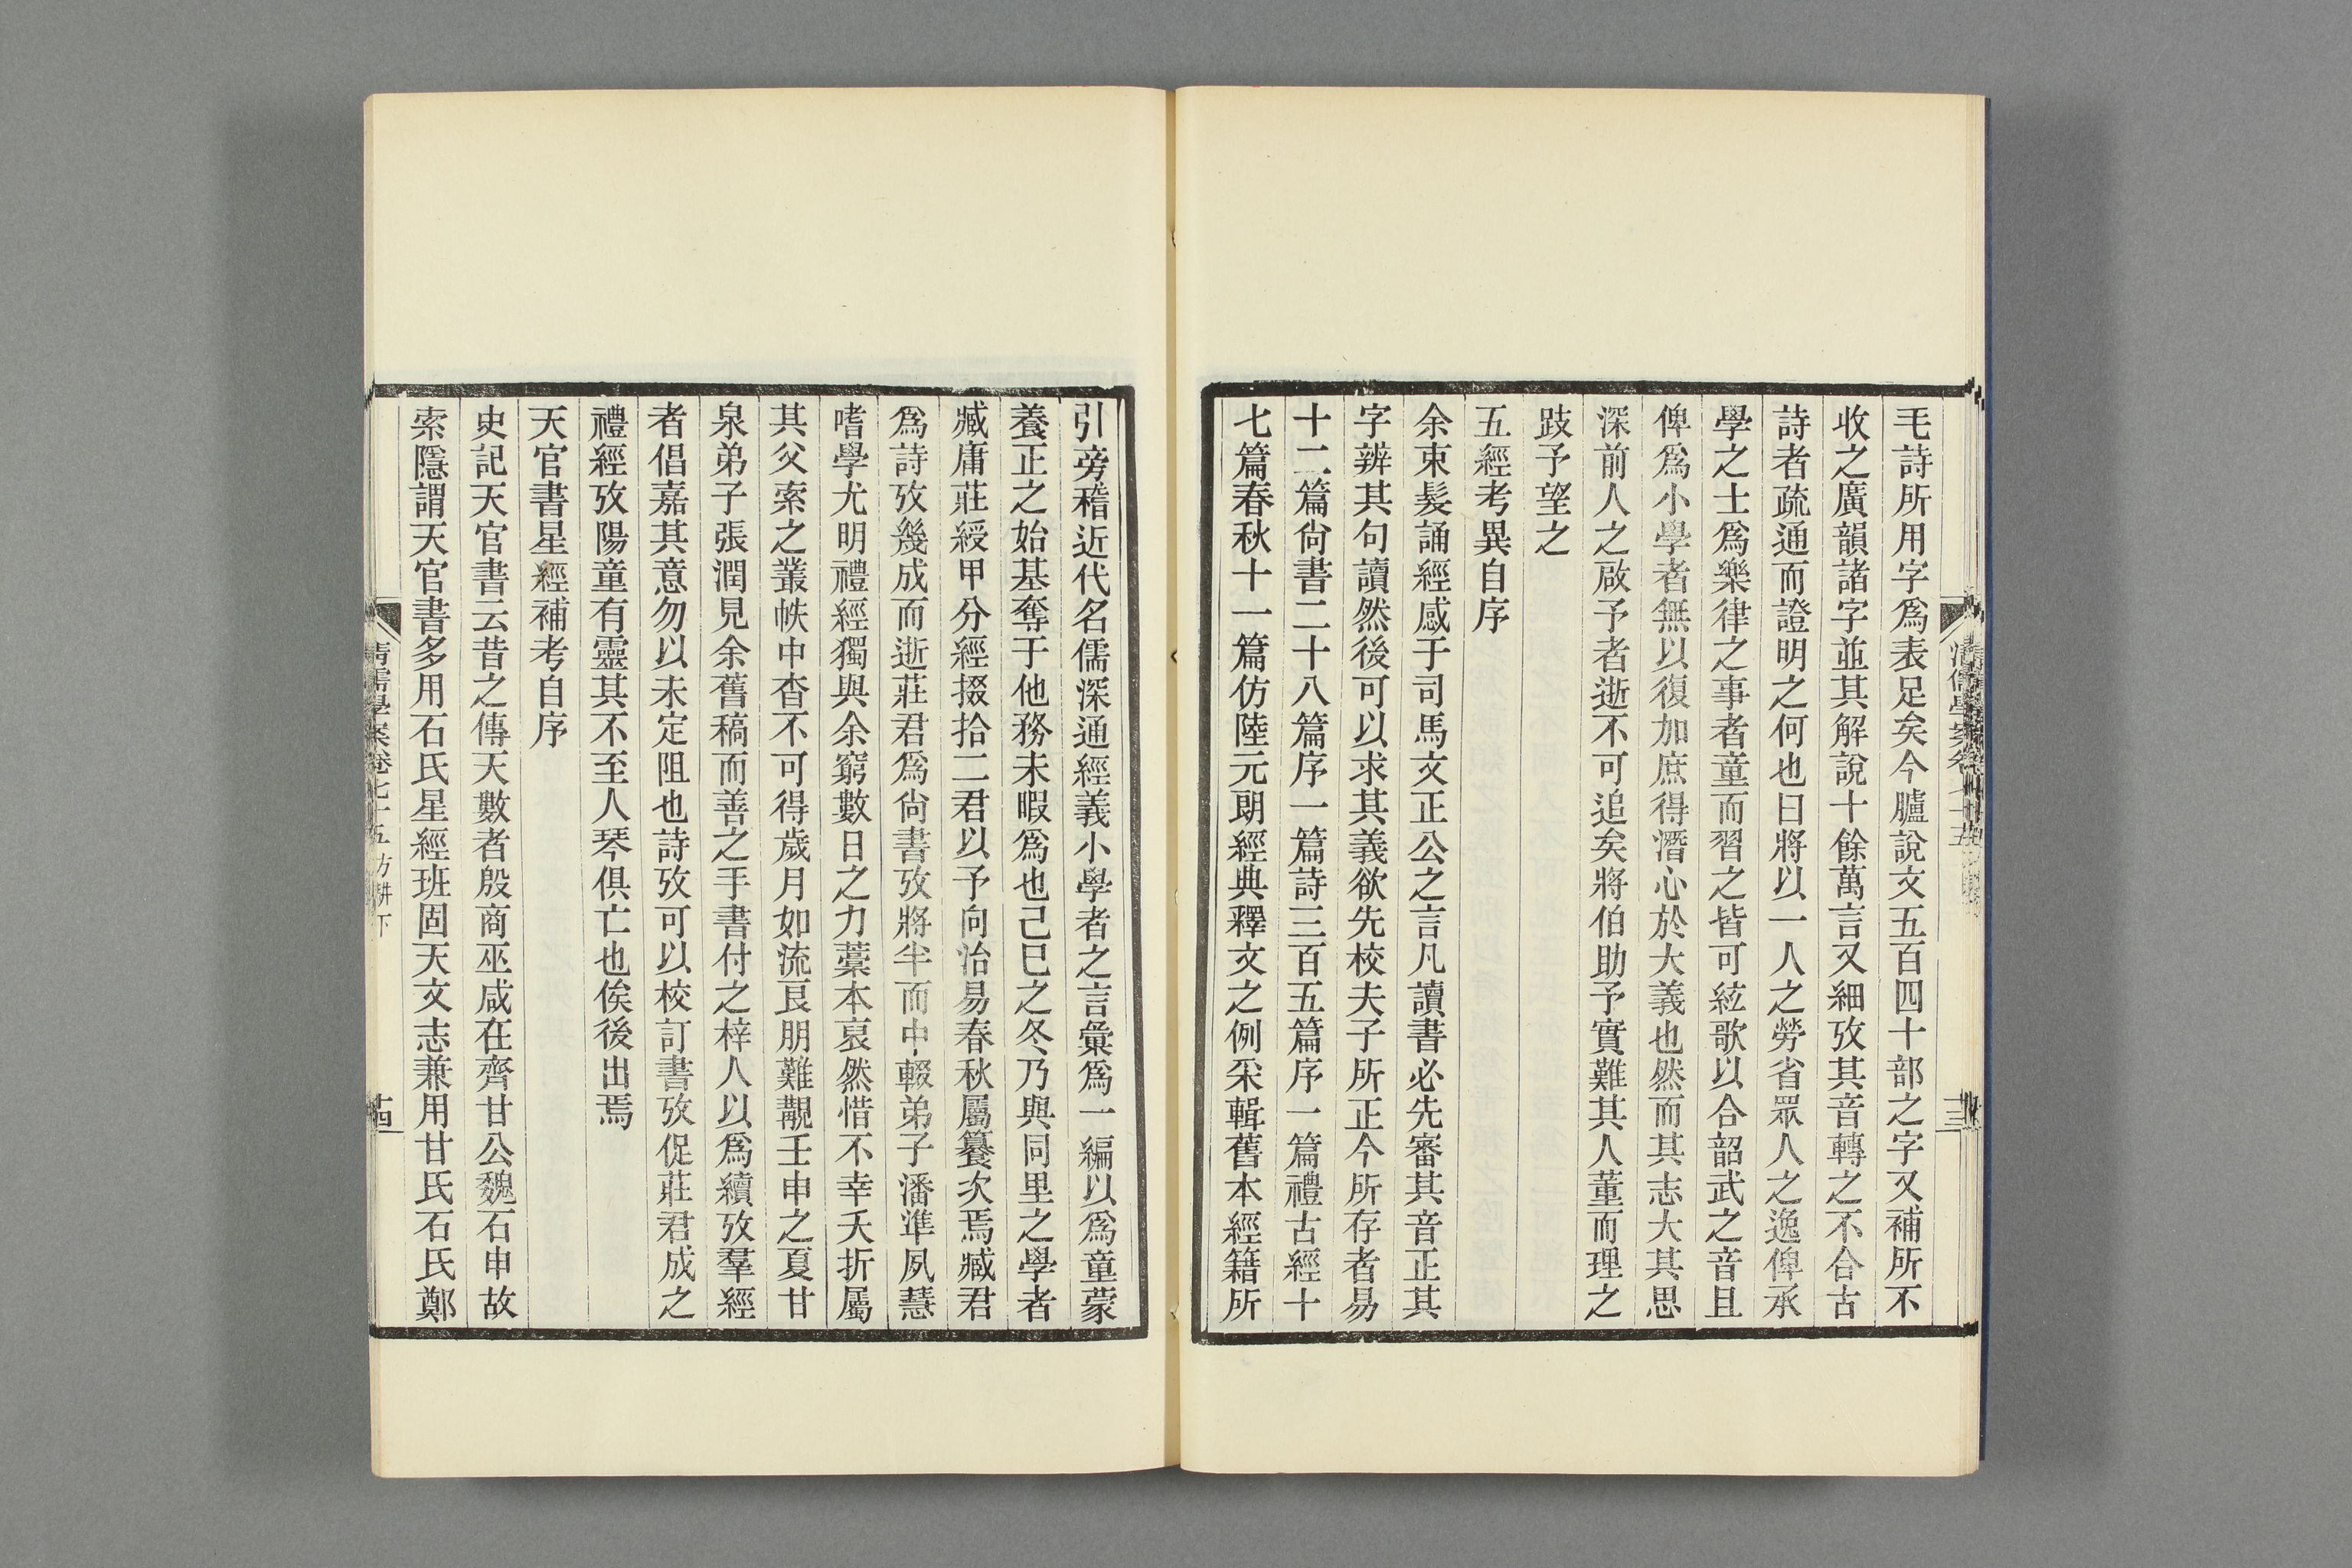 毛詩所用字爲表足矣今臚說文五百四十部之字又補所不
收之廣韻諸字並其解說十餘萬言又細攷其音轉之不合古
詩者疏通而證明之何也曰將以一人之勞省眾人之逸俾承
學之士爲樂律之事者童而習之皆可絃歌以合韶武之音且
俾爲小學者無以復加庶得潛心於大義也然而其志大其思
深前人之啟予者逝不可追矣將伯助予實難其人董而理之
跂予望之
五經考異自序
余束髮誦經感于司馬文正公之言凡讀書必先審其音正其
字辨其句讀然後可以求其義欲先校夫子所正今所存者易
十二篇尙書二十八篇序一篇詩三百五篇序一篇禮古經十
七篇春秋十一篇仿陸元朗經典釋文之例采輯舊本經籍所
引旁稽近代名儒深通經義小學者之言彙爲一編以爲童蒙
養正之始基奪于他務未暇爲也己巳之冬乃與同里之學者
臧庸莊綬甲分經掇拾二君以予向治易春秋屬纂次焉臧君
爲詩攷幾成而逝莊君爲尙書攷將半而中輟弟子潘準夙慧
嗜學尤明禮經獨與余窮數日之力藁本裒然惜不幸夭折屬
其父索之叢帙中杳不可得歲月如流良朋難覯壬申之夏甘
泉弟子張潤見余舊稿而善之手書付之梓人以爲續攷羣經
者倡嘉其意勿以未定阻也詩攷可以校訂書攷促莊君成之
禮經攷陽童有靈其不至人琴俱亡也俟後出焉
天官書星經補考自序
史記天官書云昔之傳天數者殷商巫咸在齊甘公魏石申故
索隱謂天官書多用石氏星經班固天文志兼用甘氏石氏鄭
清儒學案卷七十五 方耕下
十四